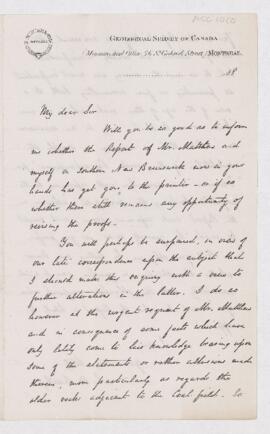 GEOLOGICAL SURVEY OF CANADA
Museum and Office, 76, St. Gabriel Street, MONTREAL,
18
My dear Sir
Will you be so good as to inform
me whether the Report of Mr. Matthew and
myself on Southern New Brunswick now in your
hands has yet gone to the printer — or if so
whether there still remains any opportunity of
revising the proofs.
You will perhaps be surprised, in view of
our late correspondence upon the subject that
I should make this enquiry with a view to
further alterations in the latter. I do so
however at the urgent request of Mr. Matthew
and in consequence of some facts which have
only lately come to his knowledge bearing upon
some of the statements or rather allusions made
therein, more particularly as regards the
older rocks adjacent to the Coal field. So